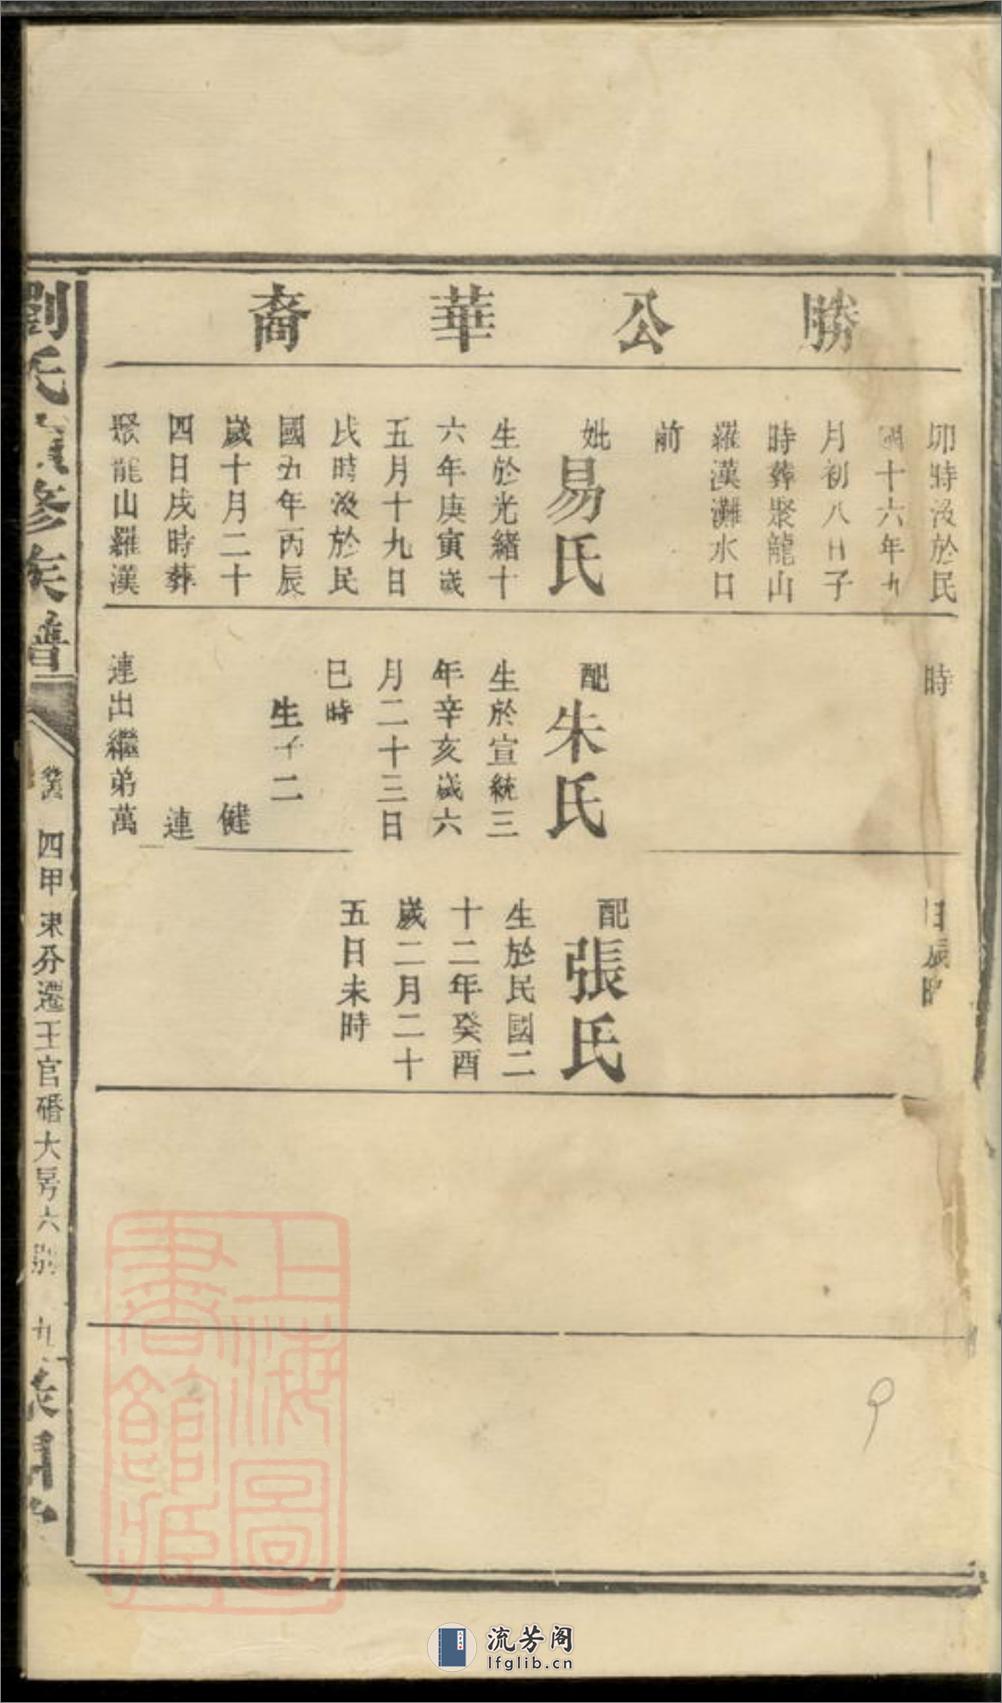 勝公華裔
卯時沒於民
國十六年九
月初八日子
時葬聚龍山
羅漢灘水口
前
妣易氏
生於光緒十
六年庚寅歲
五月十九日
戌時沒於民
國五年丙辰
歲十月二十
四日戌時葬
聚龍山羅漢
時
配朱氏
生於宣統三
年辛亥歲六
月二十三日
巳時
生子二
健
連
連出繼弟萬
日辰時
配張氏
生於民國二
十二年癸酉
歲二月二十
五日未時
劉氏 修族譜
四甲東分遷王官 大房六 九
上海圖書館藏
流芳阁
lfglib.cn